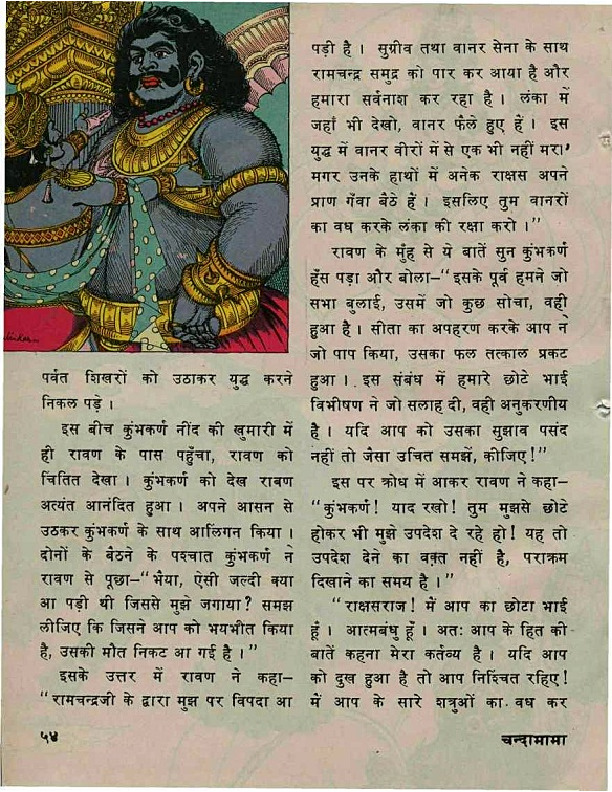 पर्वत शिखरों को उठाकर युद्ध करने
निकल पड़े ।
इस बीच कुंभकर्ण नींद की खुमारी में
ही रावण के पास पहुँचा, रावण को
चिंतित देखा । कुंभकर्ण को देख रावण
अत्यंत आनंदित हुआ । अपने आसन से
उठकर कुंभकर्ण के साथ आलिंगन किया ।
दोनों के बैठने के पश्चात कुंभकर्ण ने
रावण से पूछा–“भैया, ऐसी जल्दी क्या
आ पड़ी थी जिससे मुझे जगाया? समझ
लीजिए कि जिसने आप को भयभीत किया
है, उसकी मौत निकट आ गई है ।”
इसके उत्तर में रावण ने कहा–
“रामचन्द्रजी के द्वारा मुझ पर विपदा आ
पड़ी है । सुग्रीव तथा वानर सेना के साथ
रामचन्द्र समुद्र को पार कर आया है और
हमारा सर्वनाश कर रहा है । लंका में
जहाँ भी देखो, वानर फैले हुए हैं । इस
युद्ध में वानर वीरों में से एक भी नहीं मरा'
मगर उनके हाथों में अनेक राक्षस अपने
प्राण गँवा बैठे हैं । इसलिए तुम वानरों
का वध करके लंका की रक्षा करो ।”
रावण के मुँह से ये बातें सुन कुंभकर्ण
हँस पड़ा और बोला–“इसके पूर्व हमने जो
सभा बुलाई, उसमें जो कुछ सोचा, वही
हुआ है । सीता का अपहरण करके आप ने
जो पाप किया, उसका फल तत्काल प्रकट
हुआ । इस संबंध में हमारे छोटे भाई
विभीषण ने जो सलाह दी, वही अनुकरणीय
है । यदि आप को उसका सुझाव पसंद
नहीं तो जैसा उचित समझें, कीजिए!”
इस पर क्रोध में आकर रावण ने कहा–
“कुंभकर्ण! याद रखो! तुम मुझसे छोटे
होकर भी मुझे उपदेश दे रहे हो! यह तो
उपदेश देने का वक़्त नहीं है, पराक्रम
दिखाने का समय है ।”
“राक्षसराज! मैं आप का छोटा भाई
हूँ । आत्मबंधु हूँ । अतः आप के हित की
बातें कहना मेरा कर्तव्य है । यदि आप
को दुख हुआ है तो आप निश्चिंत रहिए!
मैं आप के सारे शत्रुओं का वध कर
५४
चन्दामामा